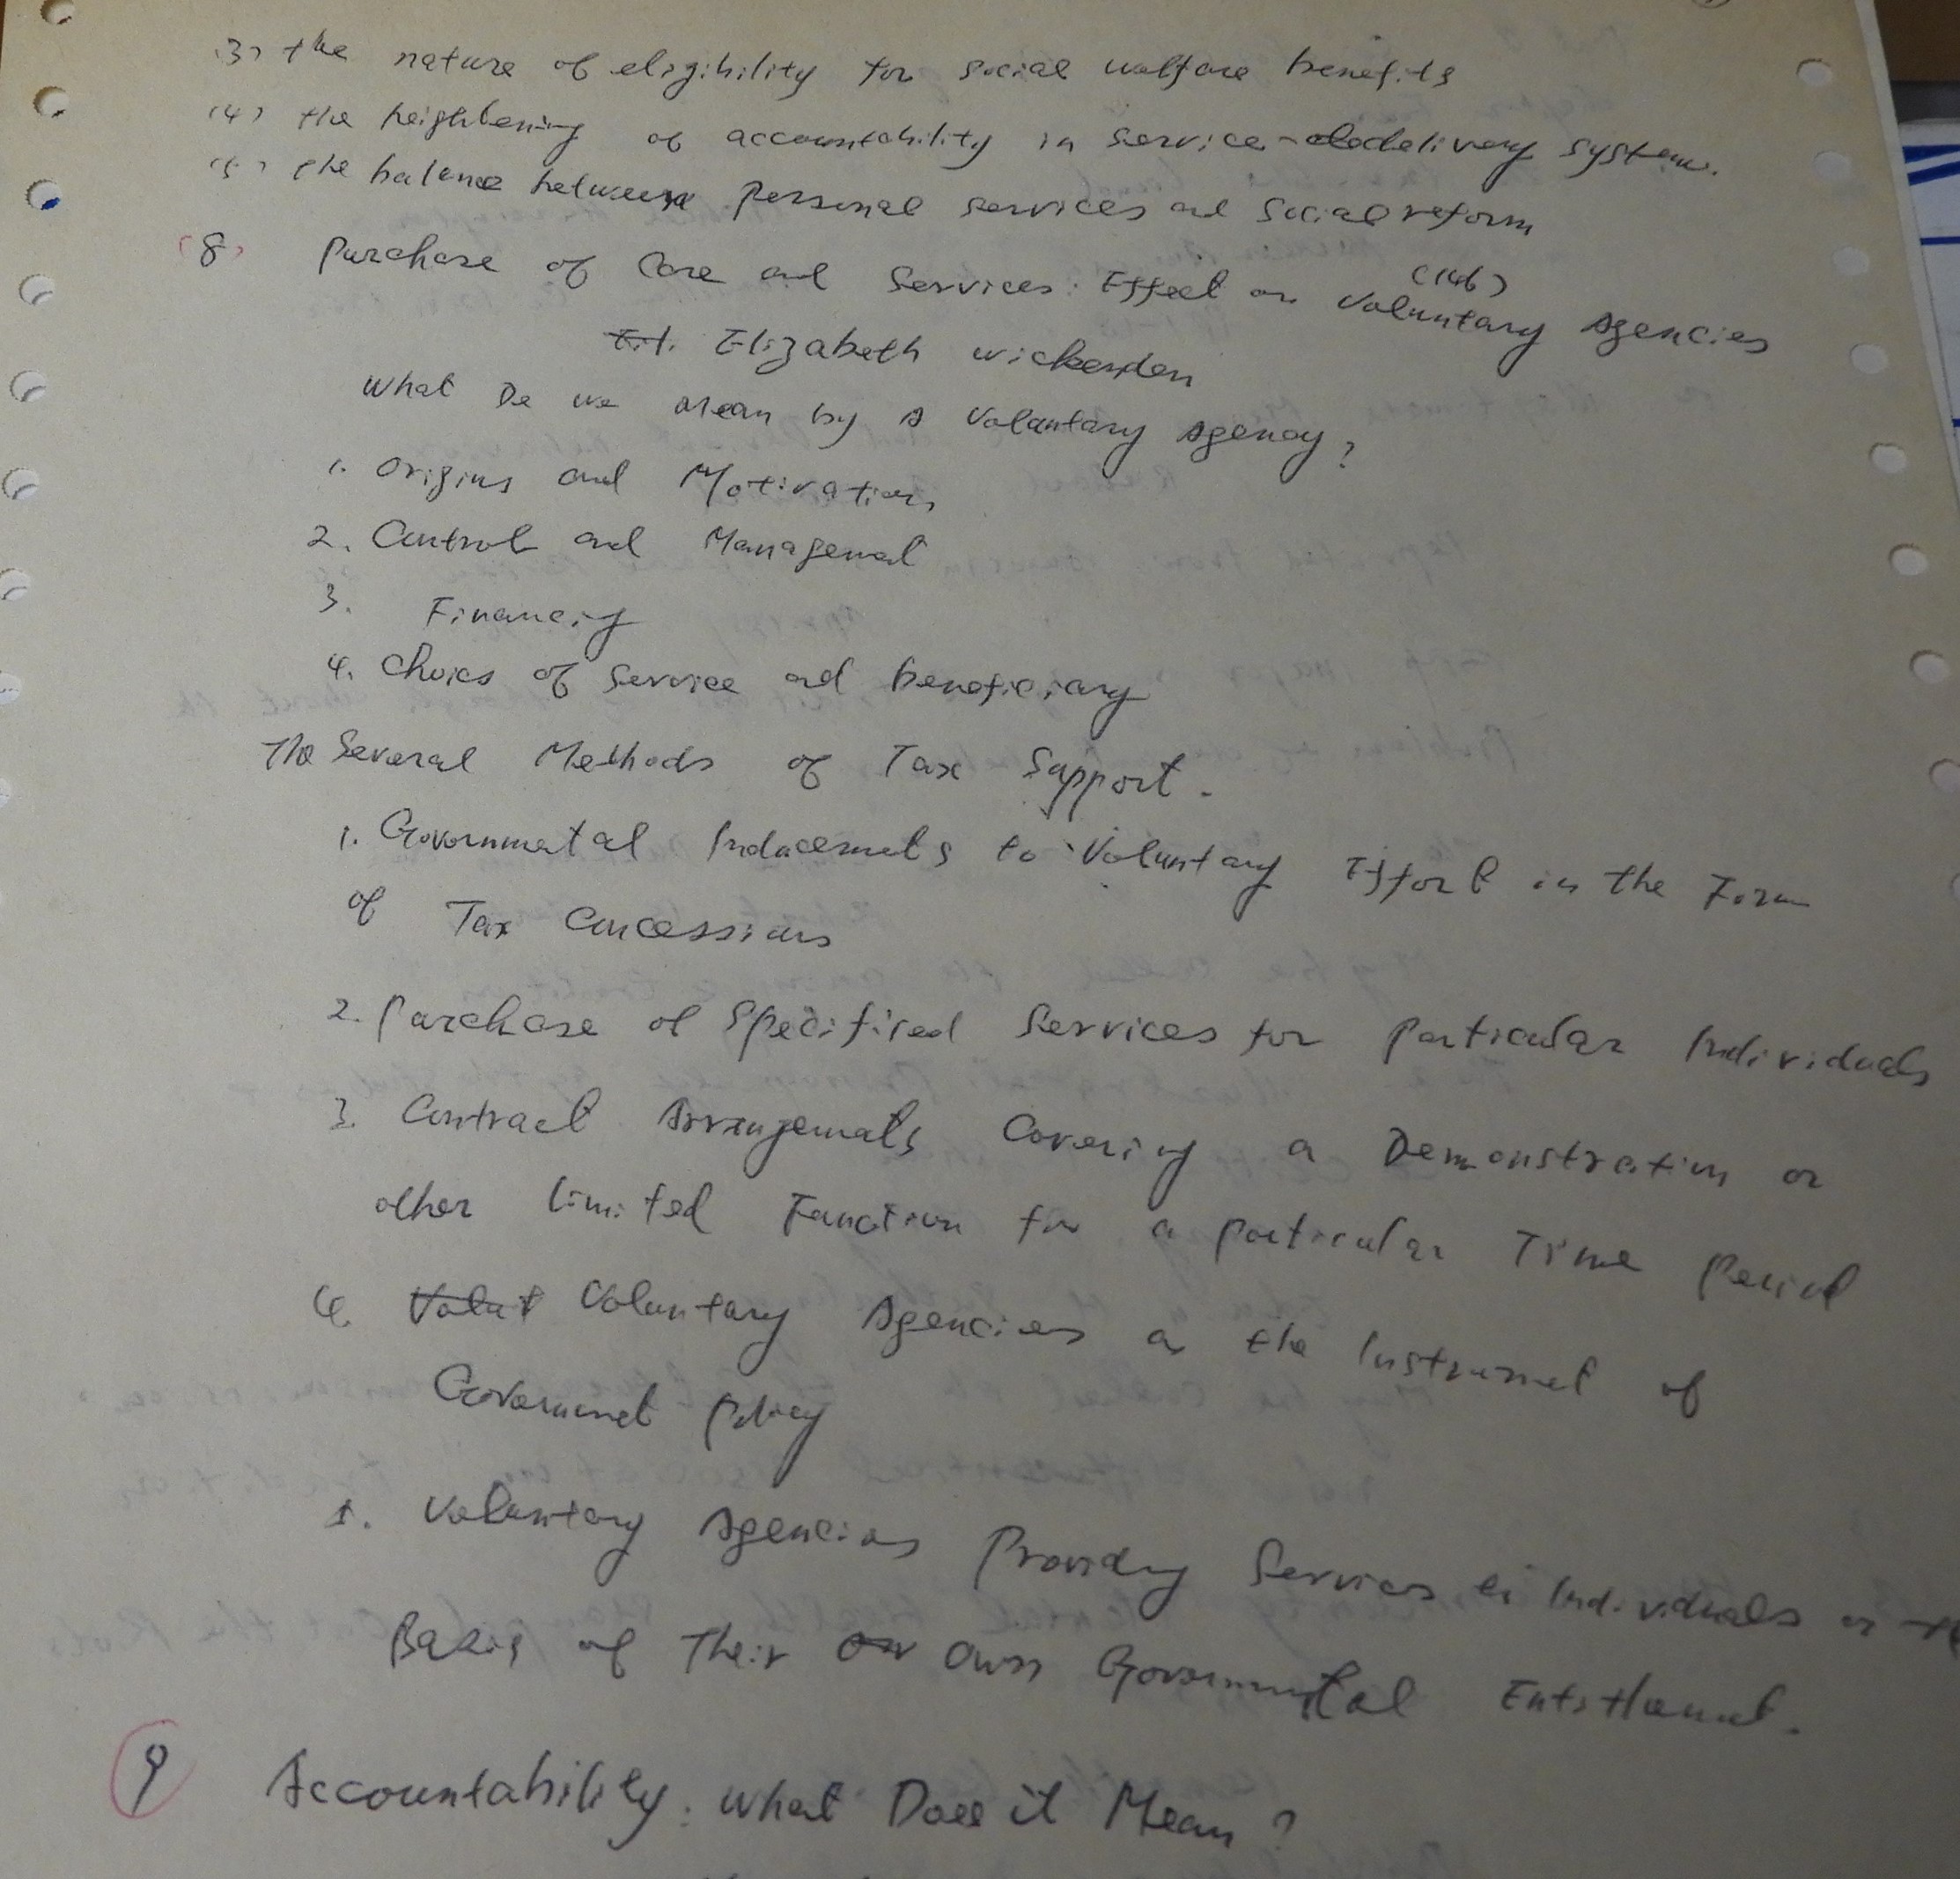 (3) the nature of eligibility for social welfare benefits
(4) the heightening of accountability in service-delivery system.
(5) the balance between personal services and social reform
(8) Purchase of Care and Services: Effect on Voluntary Agencies (146)
Elizabeth Wickenden
What Do we Mean by A Voluntary Agency?
1. Origins and Motivations
2. Control and Management
3. Financing
4. Choice of Service and beneficiary
The Several Methods of Tax Support.
1. Governmental Inducements to Voluntary Effort in the Form
of Tax Concessions
2. Purchase of Specified Services for Particular Individuals
3. Contract Arrangements Covering a Demonstration or
other limited Function for a particular Time Period
4. Voluntary Agencies as the Instrument of
Government Policy
5. Voluntary Agencies Providing Services to Individuals on the
Basis of Their Own Governmental Entitlement.
9 Accountability: What Does it Mean?